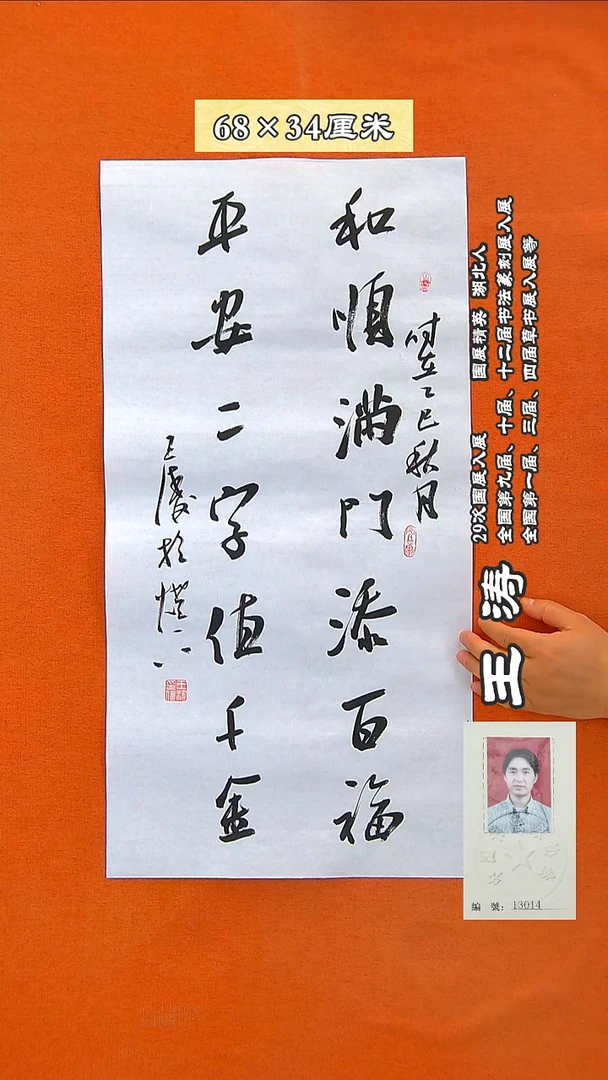 68×34厘米
和順满门添百福
时在乙巳秋月
平安二字值千金
王涛於
29次國展入展 國展精英 湖北人
全国第九届、十届、十二届书法篆刻展入展
全国第一届、三届、四届草书展入展等
王涛
編 號: 13014